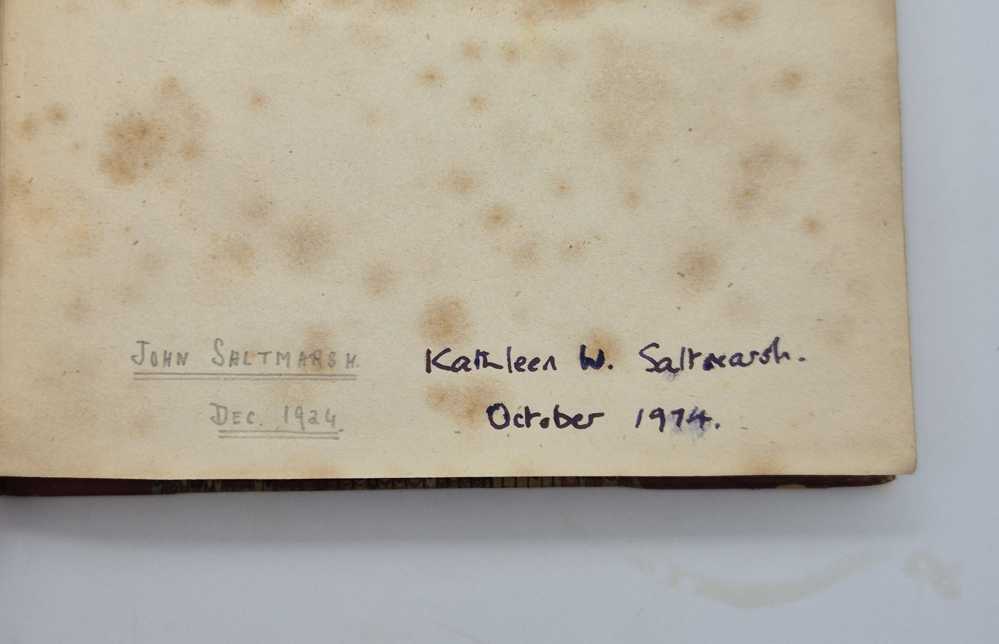 JOHN SALTMARSH.
DEC. 1924
Kathleen W. Saltmarsh.
October 1974.